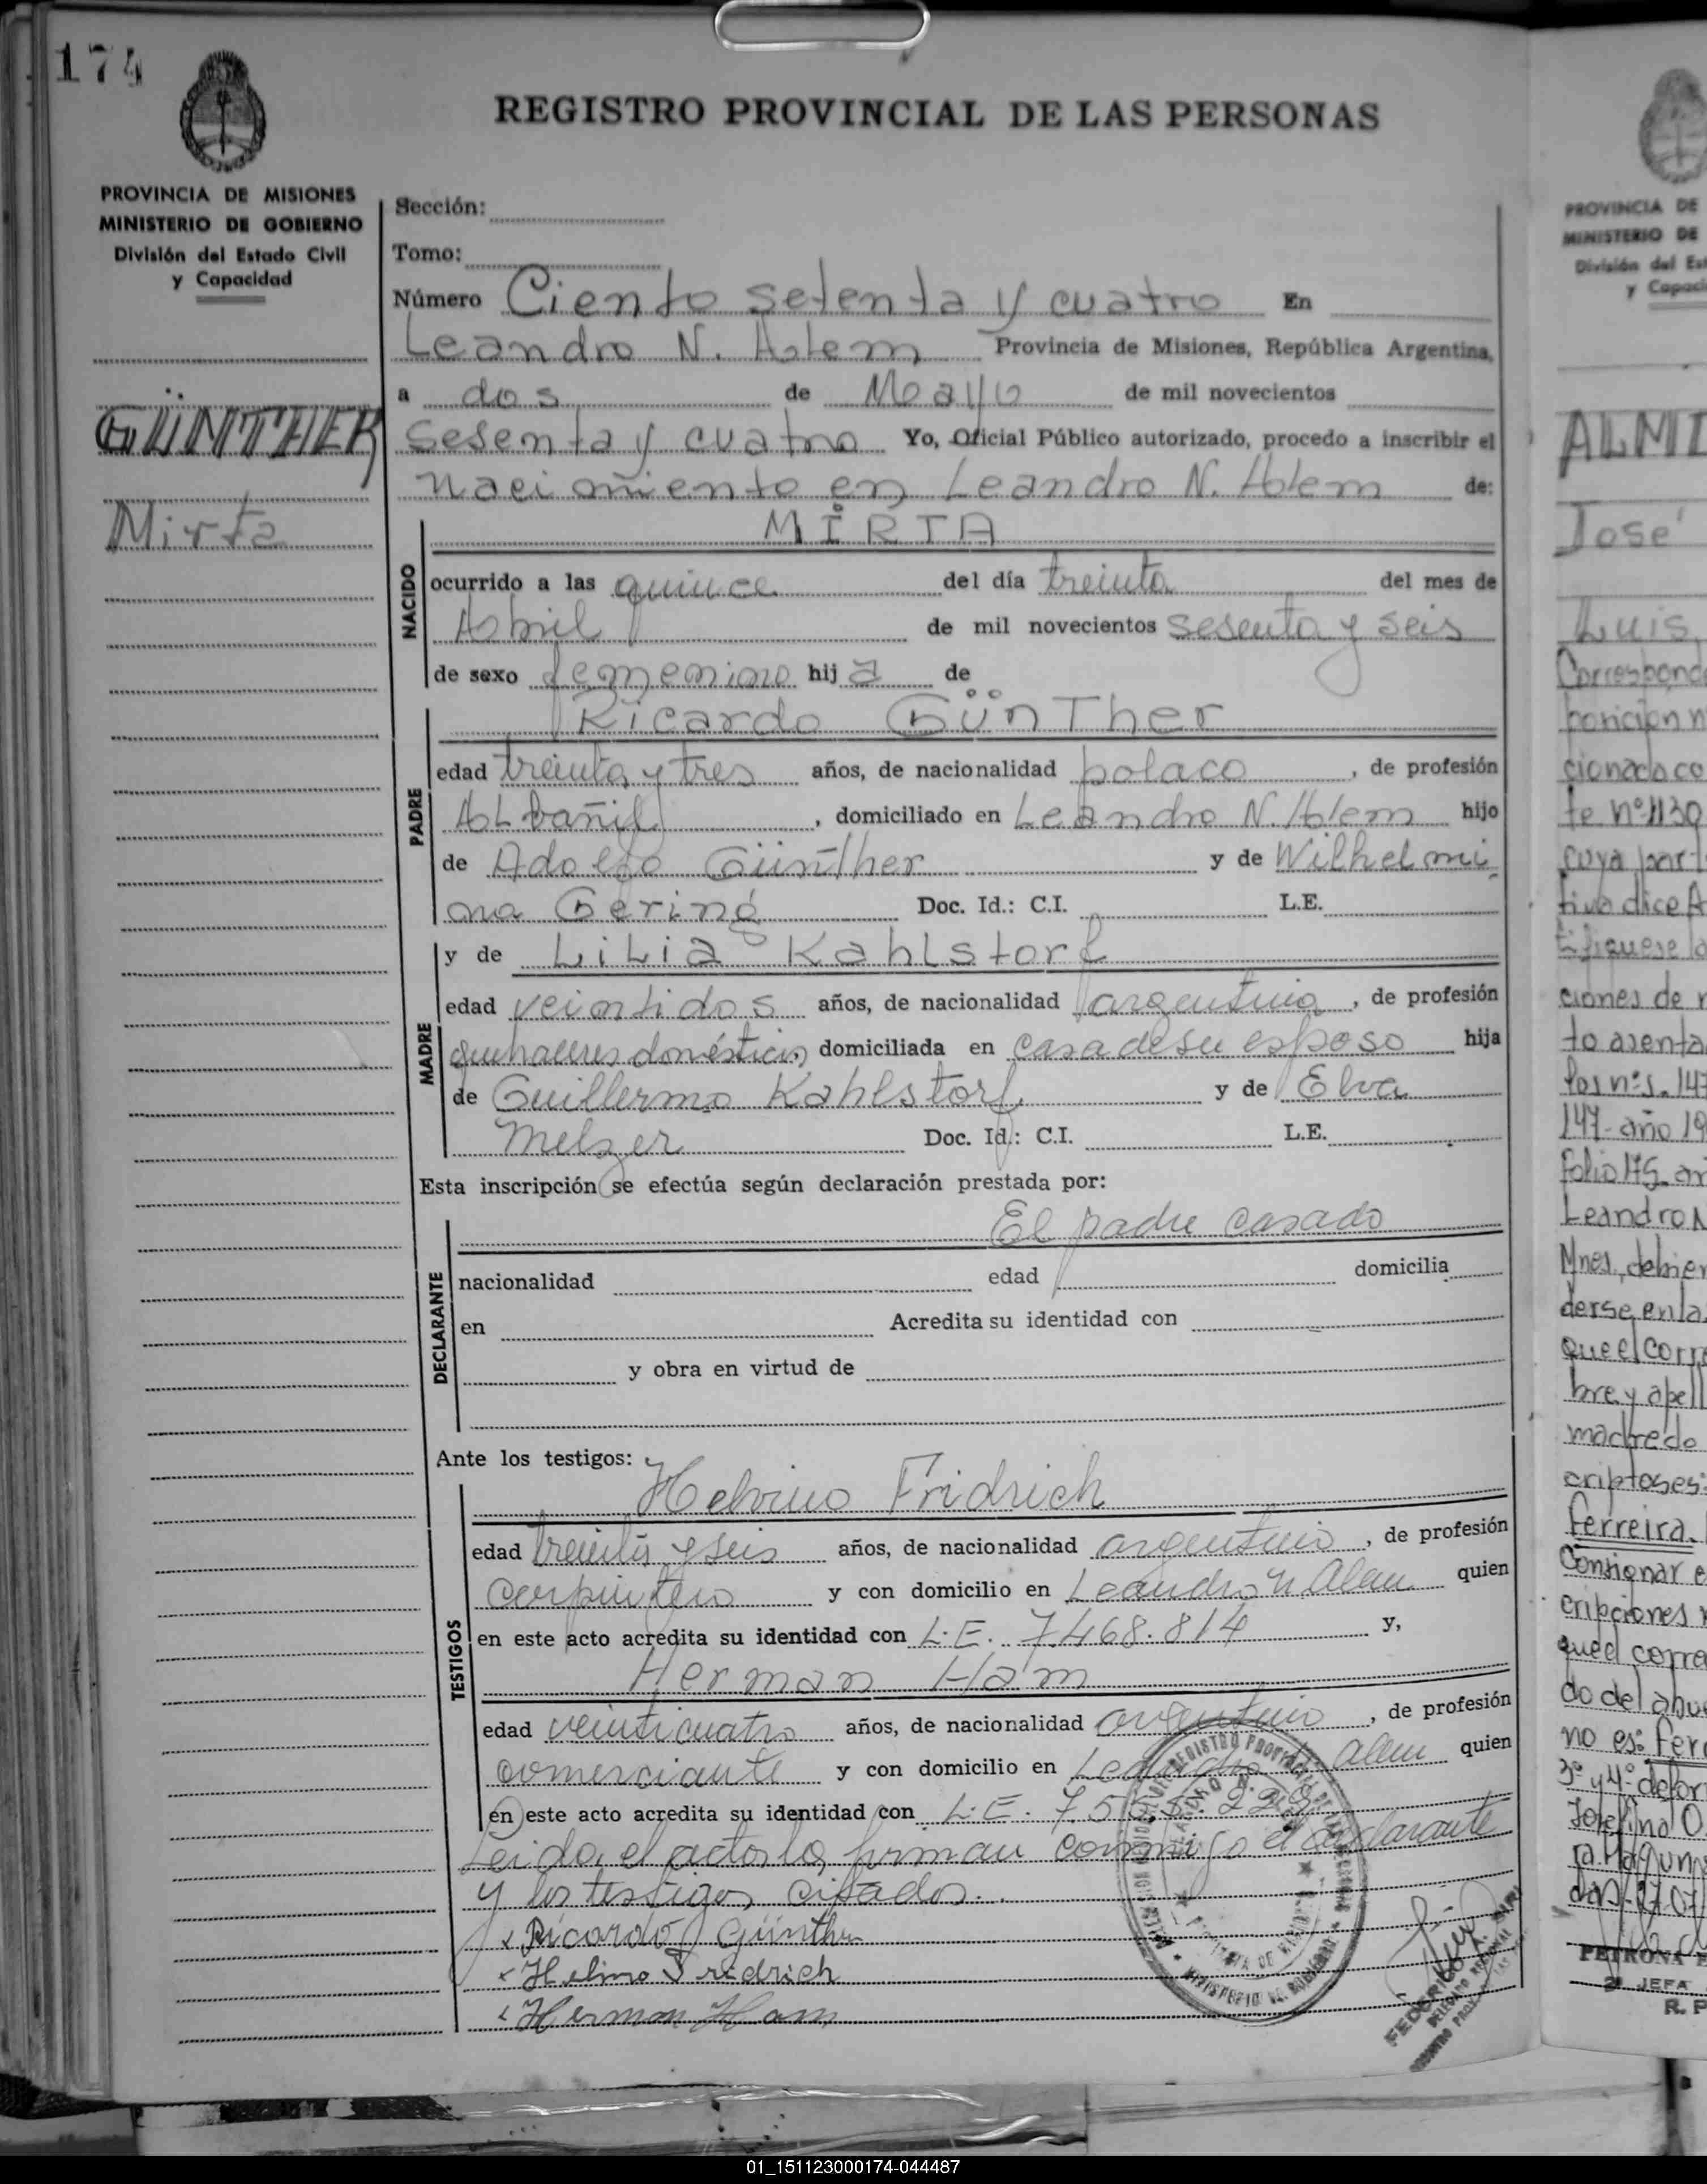 174
REGISTRO PROVINCIAL DE LAS PERSONAS
PROVINCIA DE MISIONES
MINISTERIO DE GOBIERNO
División del Estado Civil
y Capacidad
GÜNTHER
Mirta
Sección:
Tomo:
Número Ciento setenta y cuatro En
Leandro N. Alem Provincia de Misiones, República Argentina,
a dos de Mayo de mil novecientos
Sesenta y cuatro Yo, Oficial Público autorizado, procedo a inscribir el
nacimiento en Leandro N. Alem de:
NACIDO
MIRTA
ocurrido a las quince del día treinta del mes de
Abril de mil novecientos sesenta y seis
de sexo femenino hija de
PADRE
Ricardo GünTher
edad treinta y tres años, de nacionalidad polaco, de profesión
ALbañil, domiciliado en Leandro N. Alem hijo
de Adolfo Günther y de Wilhelmi
na Gering Doc. Id.: C.I. L.E.
MADRE
y de LiLia KahLstorf
edad veintidos años, de nacionalidad argentina, de profesión
quehaceres domésticos, domiciliada en casa de su esposo hija
de Guillermo Kahlstorf y de Elva
Melzer Doc. Id.: C.I. L.E.
Esta inscripción se efectúa según declaración prestada por:
DECLARANTE
El padre casado
nacionalidad edad domicilia
en Acredita su identidad con
y obra en virtud de
Ante los testigos:
TESTIGOS
Helvino Fridrich
edad treinta y seis años, de nacionalidad argentino, de profesión
carpintero y con domicilio en Leandro N. Alem quien
en este acto acredita su identidad con L.E. 7468.814 y,
Herman Ham
edad veinticuatro años, de nacionalidad argentino, de profesión
comerciante y con domicilio en Leandro N. Alem quien
en este acto acredita su identidad con L.E. 7.5
Leida el acta la firman conmigo el declarante
y los testigos citados.
Ricardo Günther
Helvino Fridrich
Herman Ham
PROVINCIA DE
MINISTERIO DE
División del Est
y Capaci
ALMI
José
Luis
Corresponde
posición n
cionada co
te nº 1130
cuya part
tiva dice A
tifiquese la
ciones de n
to asenta
los nºs. 147
147- año 19
folio 175 ar
Leandro N
Mnes, debien
derse en la
que el corr
bre y apell
madre do
criptos es:
Ferreira.
Consignar e
cripciones n
que el corre
do del abue
no es: Ferr
3º y 4º de for
Josefina O
PETRONA
2ª JEFA
R. P
01_151123000174-044487